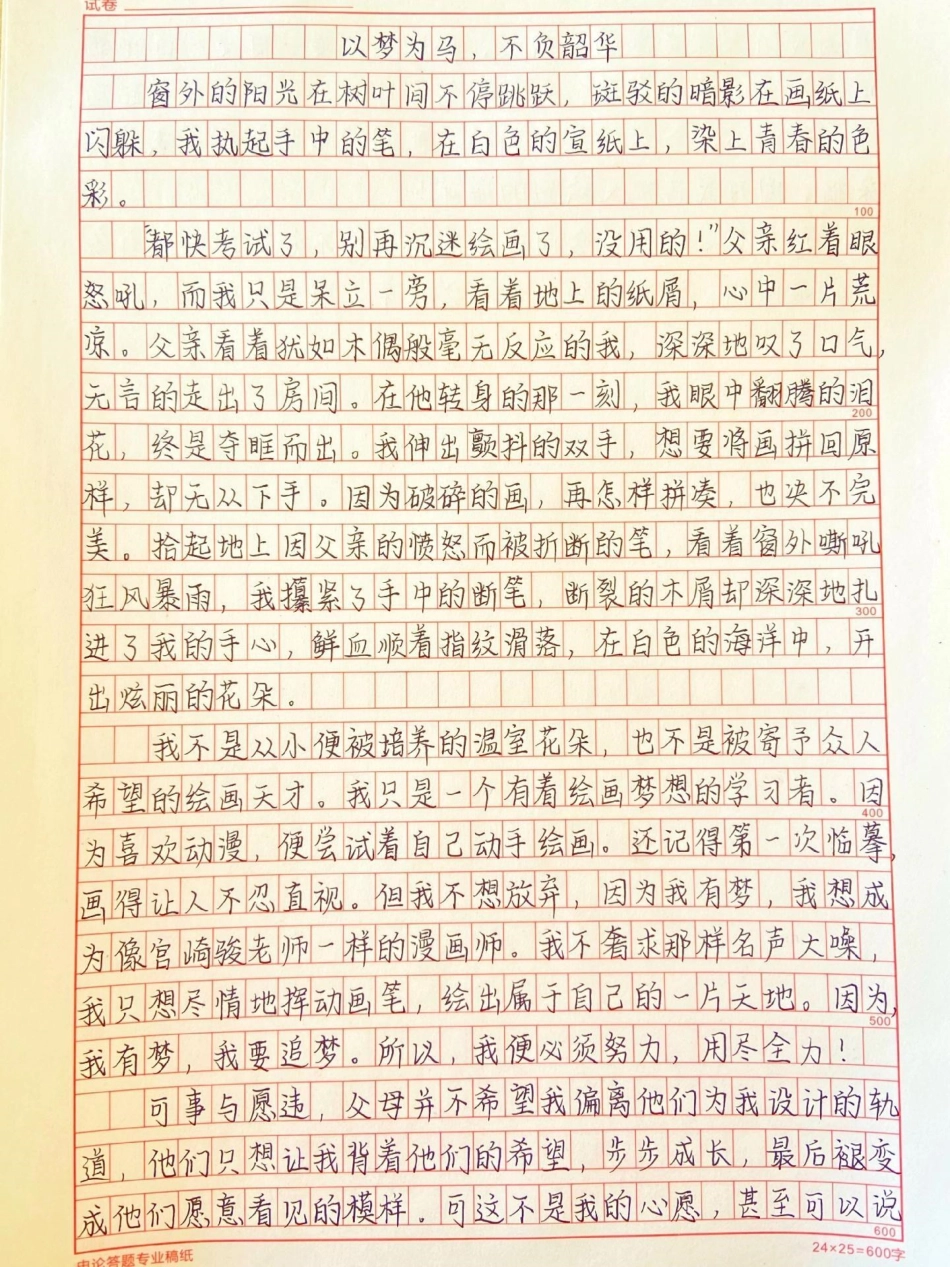 试卷
以梦为马，不负韶华
窗外的阳光在树叶间不停跳跃，斑驳的暗影在画纸上
闪躲，我执起手中的笔，在白色的宣纸上，染上青春的色
彩。
100
“都快考试了，别再沉迷绘画了，没用的！”父亲红着眼
怒吼，而我只是呆立一旁，看着地上的纸屑，心中一片荒
凉。父亲看着犹如木偶般毫无反应的我，深深地叹了口气，
无言的走出了房间。在他转身的那一刻，我眼中翻腾的泪
200
花，终是夺眶而出。我伸出颤抖的双手，想要将画拼回原
样，却无从下手。因为破碎的画，再怎样拼凑，也决不完
美。拾起地上因父亲的愤怒而被折断的笔，看着窗外嘶吼
狂风暴雨，我攥紧了手中的断笔，断裂的木屑却深深地扎
300
进了我的手心，鲜血顺着指纹滑落，在白色的海洋中，开
出炫丽的花朵。
我不是从小便被培养的温室花朵，也不是被寄予众人
希望的绘画天才。我只是一个有着绘画梦想的学习者。因
400
为喜欢动漫，便尝试着自己动手绘画。还记得第一次临摹，
画得让人不忍直视。但我不想放弃，因为我有梦，我想成
为像宫崎骏老师一样的漫画师。我不奢求那样名声大噪，
我只想尽情地挥动画笔，绘出属于自己的一片天地。因为，
500
我有梦，我要追梦。所以，我便必须努力，用尽全力！
可事与愿违，父母并不希望我偏离他们为我设计的轨
道，他们只想让我背着他们的希望，步步成长，最后褪变
成他们愿意看见的模样。可这不是我的心愿，甚至可以说
600
申论答题专业稿纸
24×25=600字